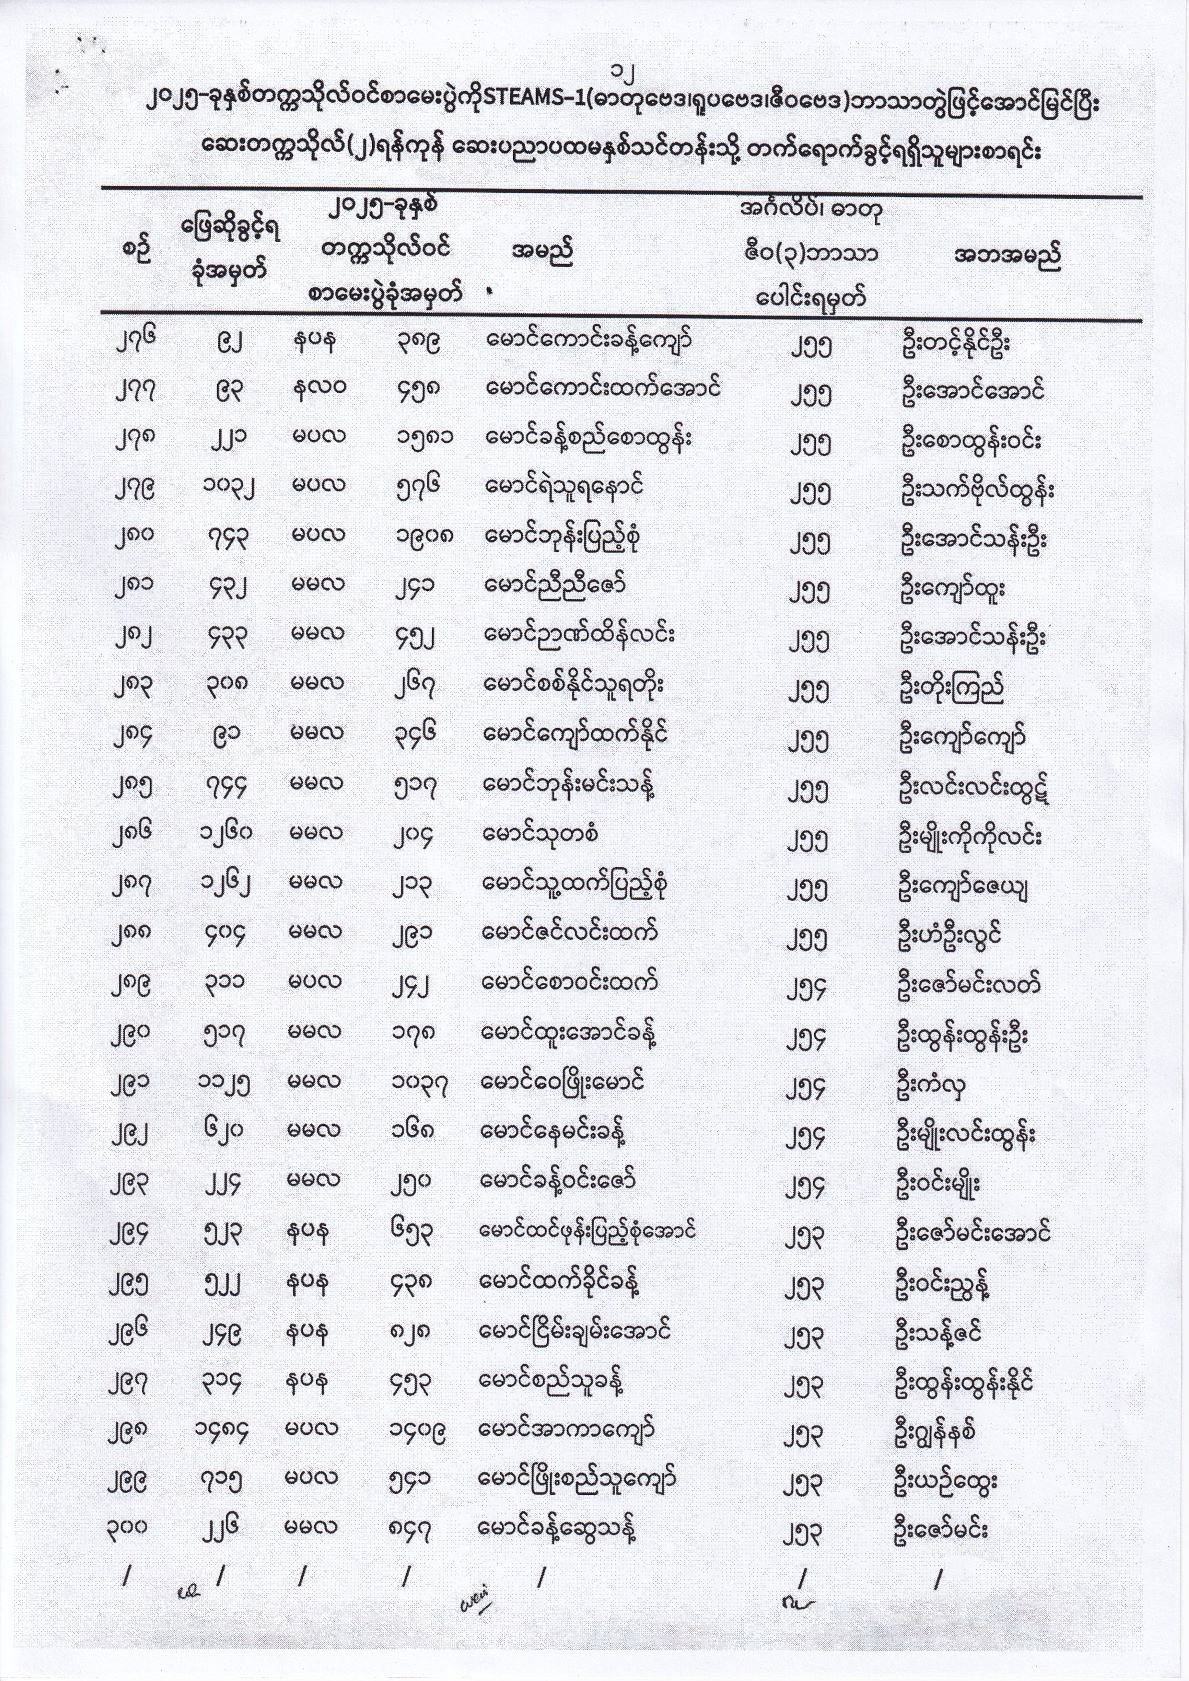 ၁၂
၂၀၂၅-ခုနှစ်တက္ကသိုလ်ဝင်စာမေးပွဲကိုSTEAMS-1(ဓာတုဗေဒ၊ရူပဗေဒ၊ဇီဝဗေဒ)ဘာသာတွဲဖြင့်အောင်မြင်ပြီး
ဆေးတက္ကသိုလ်(၂)ရန်ကုန် ဆေးပညာပထမနှစ်သင်တန်းသို့ တက်ရောက်ခွင့်ရရှိသူများစာရင်း
စဉ် ဖြေဆိုခွင့်ရ ခုံအမှတ် ၂၀၂၅-ခုနှစ် တက္ကသိုလ်ဝင် စာမေးပွဲခုံအမှတ် အမည် အင်္ဂလိပ်၊ ဓာတု ဇီဝ(၃)ဘာသာ ပေါင်းရမှတ် အဘအမည်
၂၇၆ ၉၂ နပန ၃၈၉ မောင်ကောင်းခန့်ကျော် ၂၅၅ ဦးတင့်နိုင်ဦး
၂၇၇ ၉၃ နလဝ ၄၅၈ မောင်ကောင်းထက်အောင် ၂၅၅ ဦးအောင်အောင်
၂၇၈ ၂၂၁ မပလ ၁၅၈၁ မောင်ခန့်စည်စောထွန်း ၂၅၅ ဦးစောထွန်းဝင်း
၂၇၉ ၁၀၃၂ မပလ ၅၇၆ မောင်ရဲသူရနောင် ၂၅၅ ဦးသက်ဗိုလ်ထွန်း
၂၈၀ ၇၄၃ မပလ ၁၉၀၈ မောင်ဘုန်းပြည့်စုံ ၂၅၅ ဦးအောင်သန်းဦး
၂၈၁ ၄၃၂ မမလ ၂၄၁ မောင်ညီညီဇော် ၂၅၅ ဦးကျော်ထူး
၂၈၂ ၄၃၃ မမလ ၄၅၂ မောင်ဉာဏ်ထိန်လင်း ၂၅၅ ဦးအောင်သန်းဦး
၂၈၃ ၃၀၈ မမလ ၂၆၇ မောင်စစ်နိုင်သူရတိုး ၂၅၅ ဦးတိုးကြည်
၂၈၄ ၉၁ မမလ ၃၄၆ မောင်ကျော်ထက်နိုင် ၂၅၅ ဦးကျော်ကျော်
၂၈၅ ၇၄၄ မမလ ၅၁၇ မောင်ဘုန်းမင်းသန့် ၂၅၅ ဦးလင်းလင်းထွဋ်
၂၈၆ ၁၂၆၀ မမလ ၂၀၄ မောင်သုတစံ ၂၅၅ ဦးမျိုးကိုကိုလင်း
၂၈၇ ၁၂၆၂ မမလ ၂၁၃ မောင်သူ့ထက်ပြည့်စုံ ၂၅၅ ဦးကျော်ဇေယျ
၂၈၈ ၄၀၄ မမလ ၂၉၁ မောင်ဇင်လင်းထက် ၂၅၅ ဦးဟံဦးလွင်
၂၈၉ ၃၁၁ မပလ ၂၄၂ မောင်စောဝင်းထက် ၂၅၄ ဦးဇော်မင်းလတ်
၂၉၀ ၅၁၇ မမလ ၁၇၈ မောင်ထူးအောင်ခန့် ၂၅၄ ဦးထွန်းထွန်းဦး
၂၉၁ ၁၁၂၅ မမလ ၁၀၃၇ မောင်ဝေဖြိုးမောင် ၂၅၄ ဦးကံလှ
၂၉၂ ၆၂၀ မမလ ၁၆၈ မောင်နေမင်းခန့် ၂၅၄ ဦးမျိုးလင်းထွန်း
၂၉၃ ၂၂၄ မမလ ၂၅၀ မောင်ခန့်ဝင်းဇော် ၂၅၄ ဦးဝင်းမျိုး
၂၉၄ ၅၂၃ နပန ၆၅၃ မောင်ထင်ဖုန်းပြည့်စုံအောင် ၂၅၃ ဦးဇော်မင်းအောင်
၂၉၅ ၅၂၂ နပန ၄၃၈ မောင်ထက်ခိုင်ခန့် ၂၅၃ ဦးဝင်းညွန့်
၂၉၆ ၂၄၉ နပန ၈၂၈ မောင်ငြိမ်းချမ်းအောင် ၂၅၃ ဦးသန့်ဇင်
၂၉၇ ၃၁၄ နပန ၄၅၃ မောင်စည်သူခန့် ၂၅၃ ဦးထွန်းထွန်းနိုင်
၂၉၈ ၁၄၈၄ မပလ ၁၄၀၉ မောင်အာကာကျော် ၂၅၃ ဦးဂျွန်နစ်
၂၉၉ ၇၁၅ မပလ ၅၄၁ မောင်ဖြိုးစည်သူကျော် ၂၅၃ ဦးယဉ်ထွေး
၃၀၀ ၂၂၆ မမလ ၈၄၇ မောင်ခန့်ဆွေသန့် ၂၅၃ ဦးဇော်မင်း
/ / / / / / /